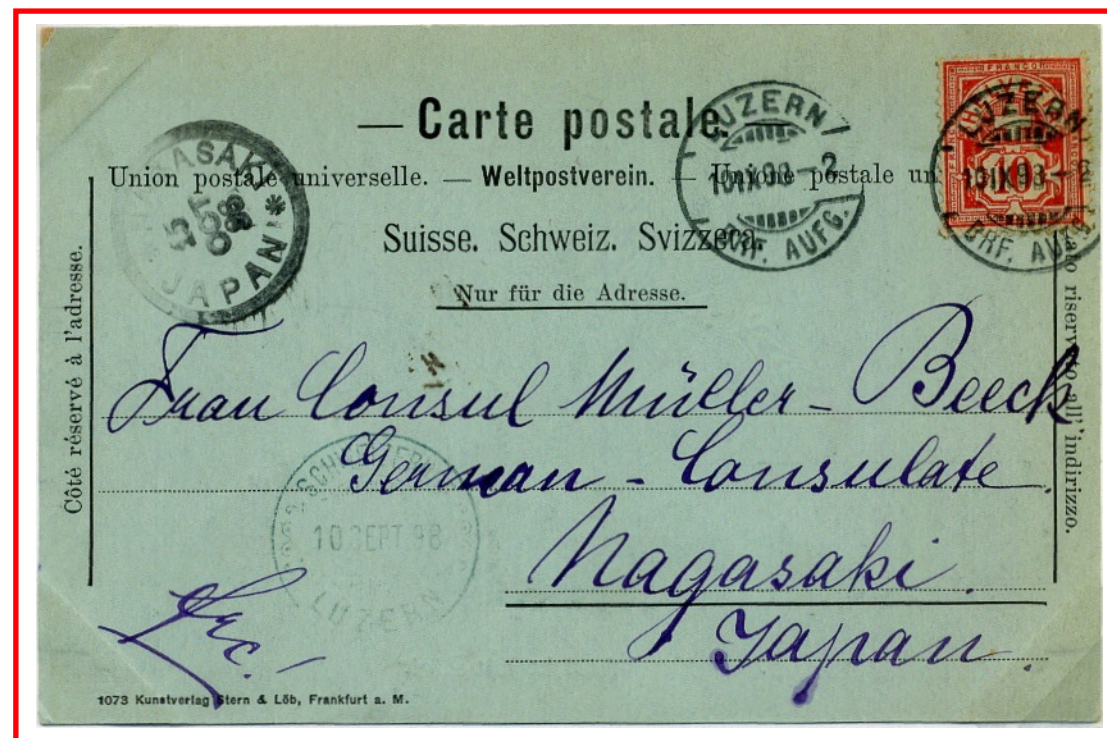 — Carte postale.
Union postale universelle. — Weltpostverein. — Unione postale un
Suisse. Schweiz. Svizzera.
Nur für die Adresse.
Côté réservé à l'adresse.
riservato all'indirizzo.
FRANCO
HELVETIA
10
LUZERN
10 IX 98 – 2
BRF. AUFG.
LUZERN
10 IX 98 – 2
BRF. AUFG.
NAGASAKI
15 OCT 98
JAPAN
Frau Consul Müller-Beeck
German-Consulate.
Nagasaki.
Japan.
10 SEPT. 98
LUZERN
1073 Kunstverlag Stern & Löb, Frankfurt a. M.